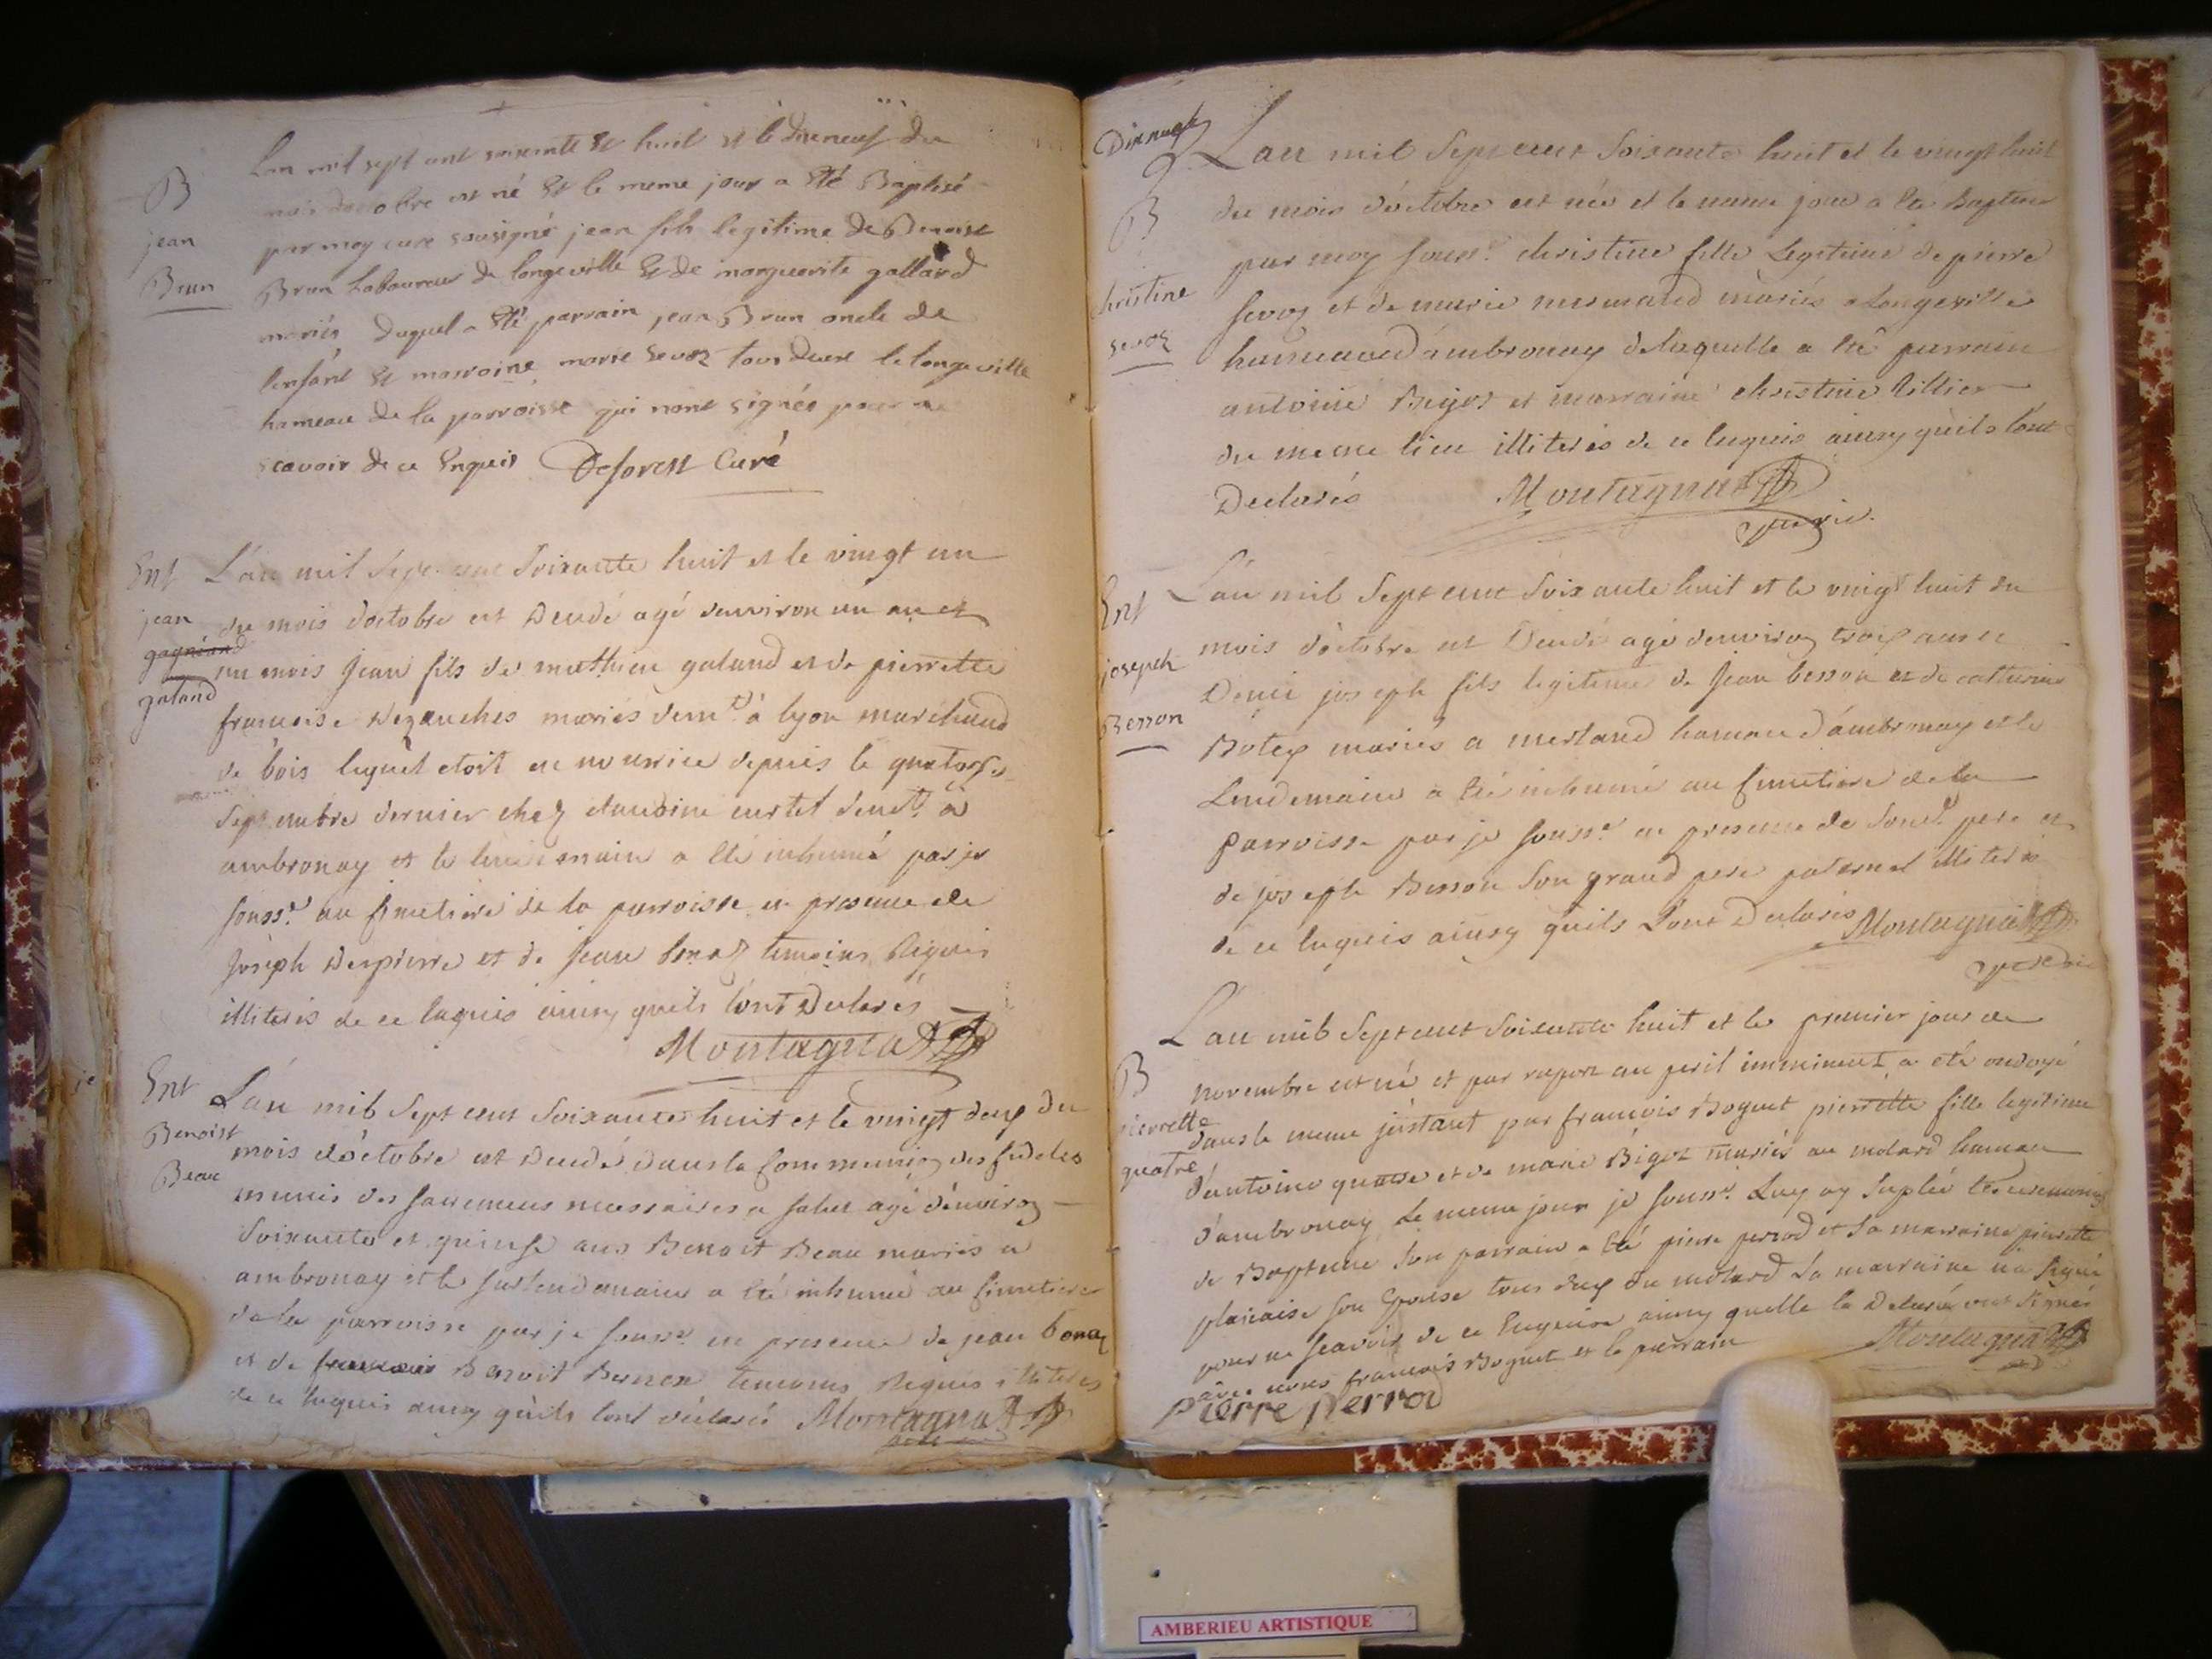 B
jean
Brun
Lan mil sept cent soixante et huit et le dixneuf du
mois doctobre est né et le meme jour a été Baptisé
par moy curé sousigné jean fils legitime de Benoist
Brun Laboureur de longeville et de marguerite galland
mariés duquel a été parrain jean Brun oncle de
lenfant et marraine marie sevoz tous deux de longeville
hameau de la parroisse qui nont signés pour ne
scavoir de ce Enquis Deforest Curé
Ent
jean
galand
L'an mil sept cent soixante huit et le vingt un
du mois doctobre est Decedé agé denviron un an et
un mois jean fils de mathieu galand et de pierrette
francoise Dezauches mariés demt à lyon marchand
de bois lequel etoit en nourrice depuis le quatorze
septembre dernier chez claudine curtet demt à
ambronay et le lendemain a été inhumé par je
souss.é au simetiere de la parroisse en presence de
joseph Despierre et de jean temoins Requis
illiterés de ce Enquis ainsy quils l'ont Declarés
Montagnat
Ent
Benoist
Beau
L'an mil sept cent soixante huit et le vingt deux du
mois d'octobre est Decedé dans la Communion des fideles
munis des sacremens necessaires a salut agé d'environ
soixante et quinse ans Benoit Beau mariés a
ambronay et le surlendemain a été inhumé au simetiere
de la parroisse par je souss.é en presence de jean bonaz
et de Benoit temoins Requis illiterés
de ce Enquis ainsy qu'ils l'ont déclarés Montagnat
B
christine
sevoz
L'an mil sept cent soixante huit et le vingt huit
du mois d'octobre est née et le meme jour a été Baptisée
par moy souss.é christine fille Legitime de pierre
sevoz et de marie mermand mariés a Longeville
hameau d'ambronay de laquelle a été parrain
antoine Bigot et marraine christine tillier
du meme lieu illiterés de ce Enquis ainsy qu'ils l'ont
Declarés Montagnat
Ent
joseph
Besson
L'an mil sept cent soixante huit et le vingt huit du
mois d'octobre est Decedé agé denviron trois ans et
Demi joseph fils legitime de jean besson et de catherine
Botex mariés a merland hameau d'ambronay et le
Lendemain a été inhumé au simetiere de la
parroisse par je souss.é en presence de sond. pere et
de joseph Besson son grand pere paternel illiterés
de ce Enquis ainsy qu'ils l'ont Declarés Montagnat
B
pierrette
quatre
L'an mil sept cent soixante huit et le premier jour de
novembre est né et par raport au peril imminent a été ondoyé
dans le meme jnstant par francois Boguet pierrette fille legitime
d'antoine quatre et de marie Bigot mariés au molard hameau
d'ambronay Le meme jour je souss.é Luy ay suplée les ceremonies
de Bapteme son parrain a été pierre perrod et sa marraine pierrette
plaiaise son Epouse tous deux du molard La marraine n'a signé
pour ne scavoir de ce Enquise ainsy quelle la Declaré ont signés
avec nous francois Boguet et le parrain Montagnat
pierre perrod
AMBERIEU ARTISTIQUE